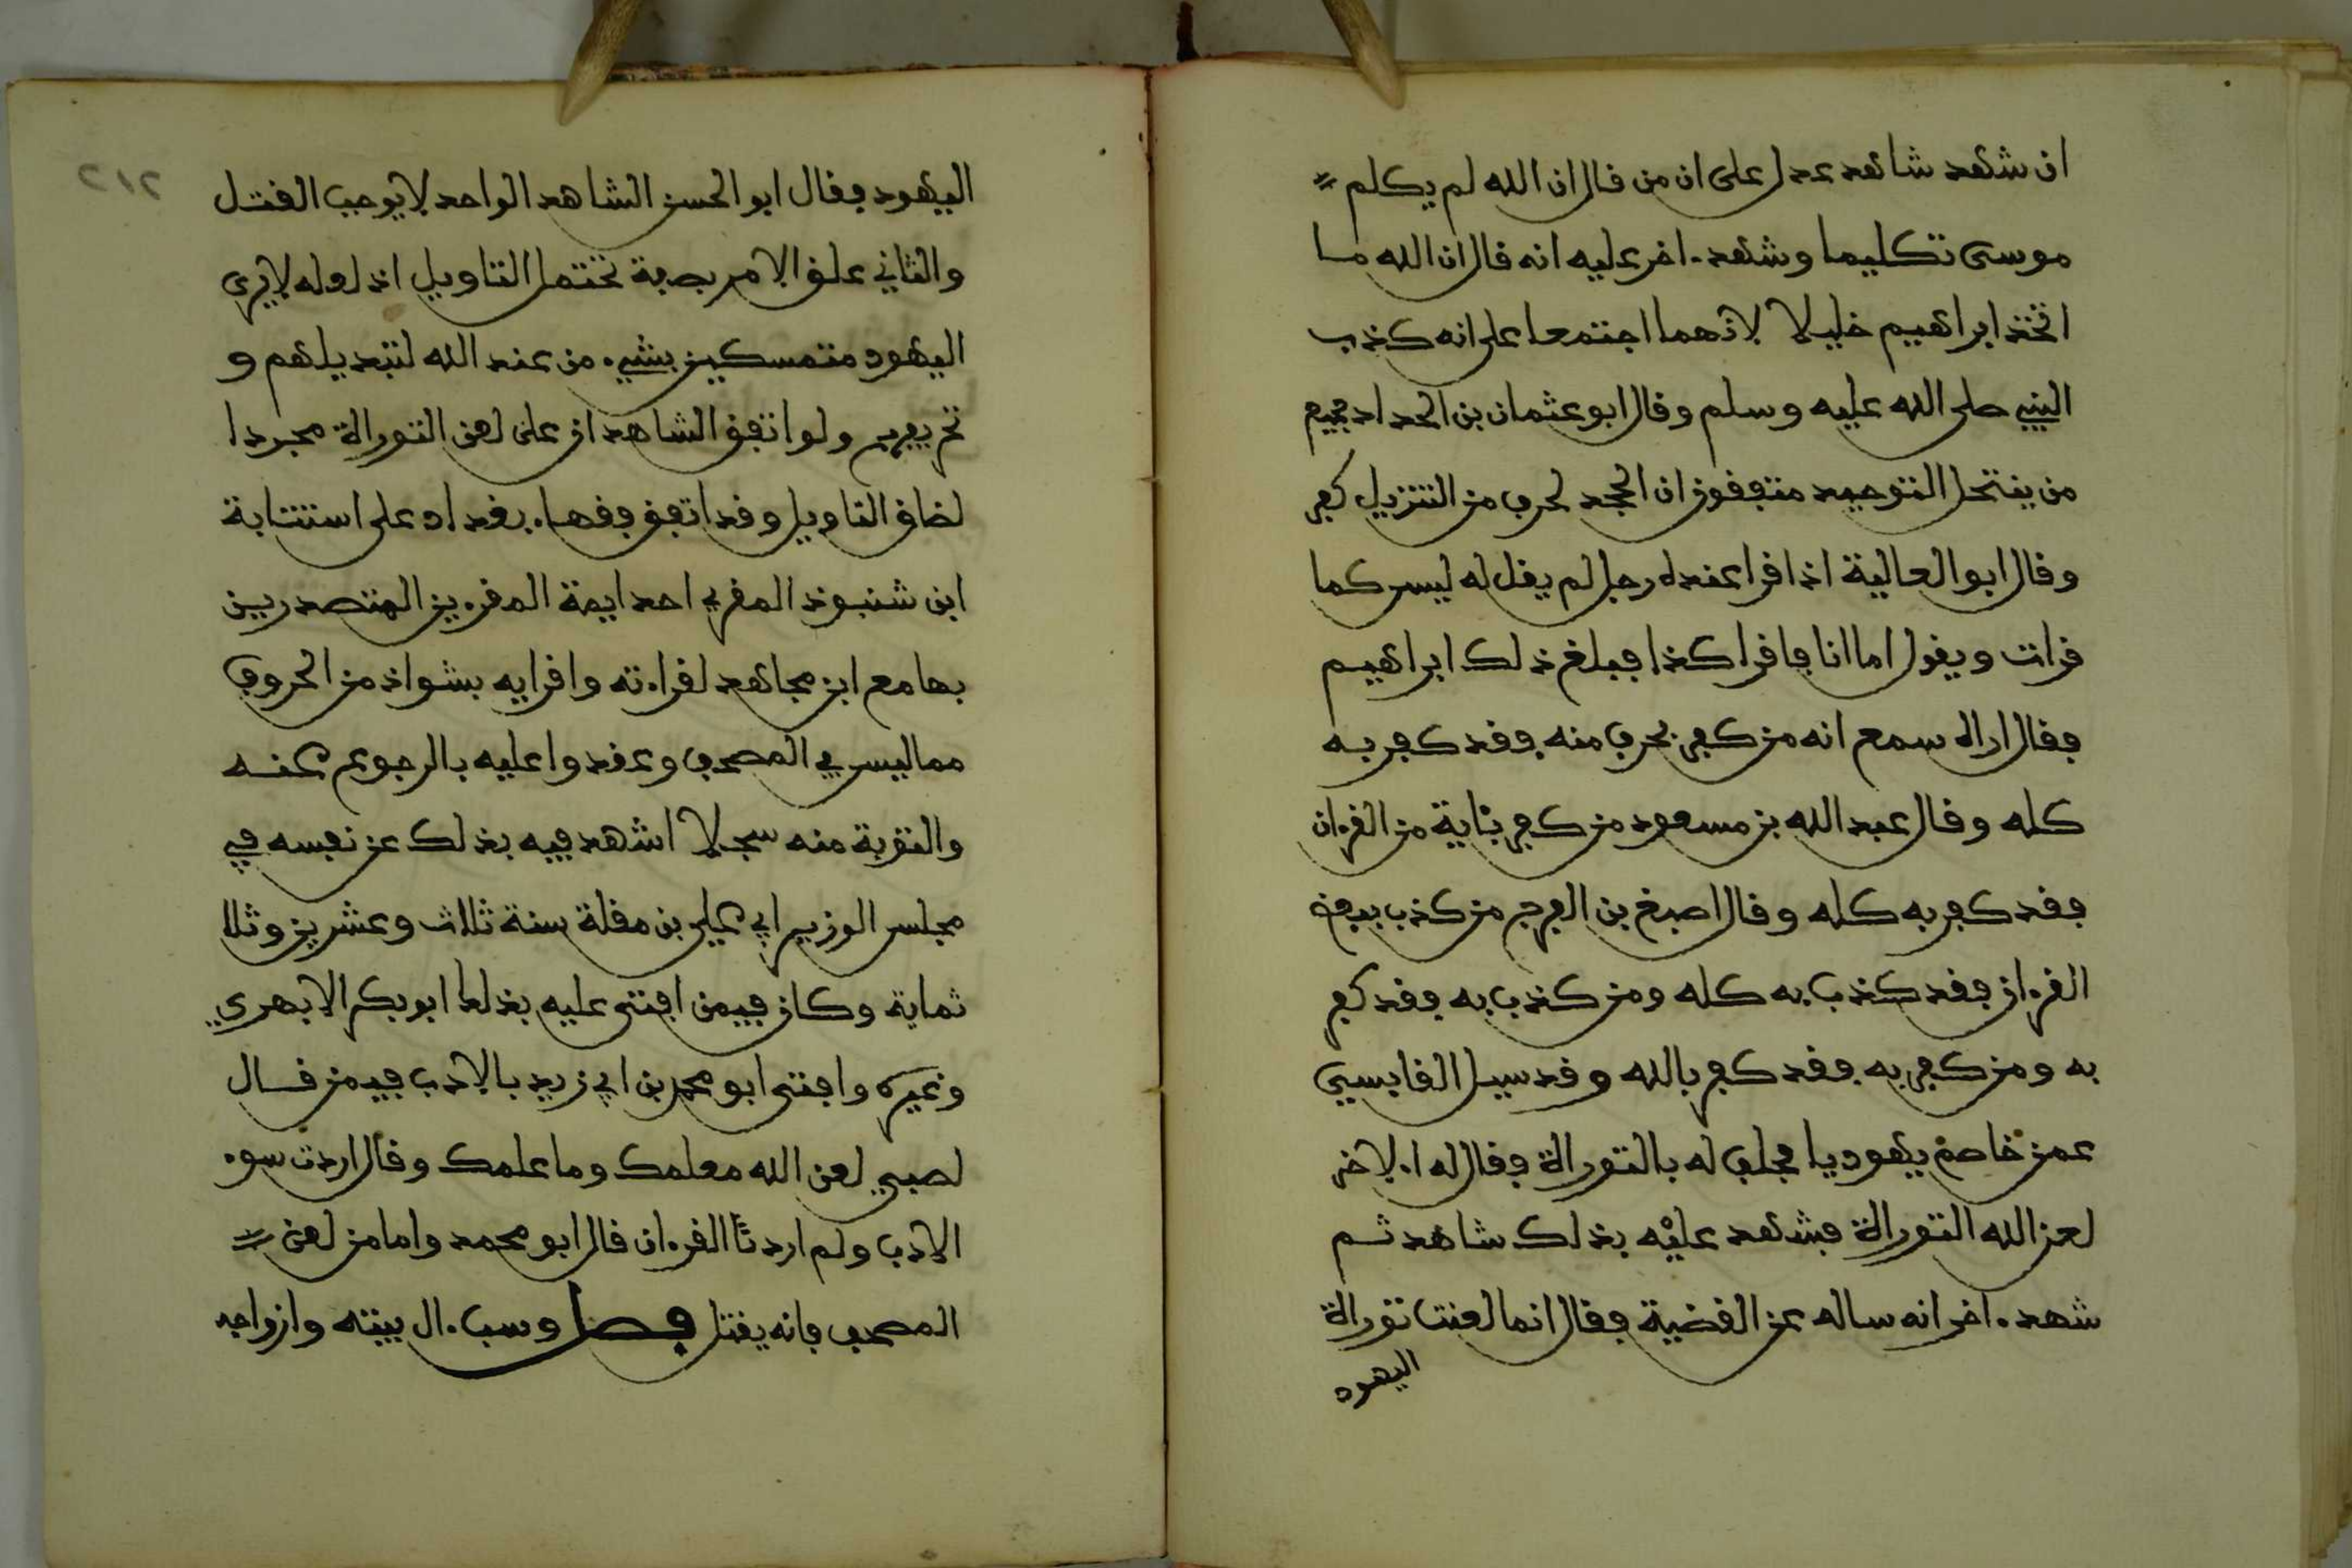 ان شهد شاهد عدل على ان من قال ان الله لم يكلم
موسى تكليما وشهد ءاخر عليه انه قال ان الله ما
اتخذ ابراهيم خليلا لانهما اجتمعا على انه كذب
النبيي صلى الله عليه وسلم وقال ابو عثمان بن الحداد جميع
من ينتحل التوحيد متفقون ان الجحد لحرف من التنزيل كفر
وقال ابو العالية اذا قرا عنده رجل لم يقل له ليس كما
قرات ويقول اما انا فاقرا كذا فبلغ ذلك ابراهيم
فقال اراه سمع انه من كفر بحرف منه فقد كفر به
كله وقال عبد الله بن مسعود من كفر بئاية من القرءان
فقد كفر به كله وقال اصبغ بن الفرج من كذب ببعض
القرءان فقد كذب به كله ومن كذب به فقد كفر
به ومن كفر به فقد كفر بالله وقد سيل القابسي
عمن خاصم يهوديا فحلف له بالتوراة فقال له الاخر
لعن الله التوراة فشهد عليه بذلك شاهد ثم
شهد ءاخر انه ساله عن القضية فقال انما لعنت توراة
اليهود
٢١٢
اليهود فقال ابو الحسن الشاهد الواحد لا يوجب القتل
والثاني علق الامر بصفة تحتمل التاويل اذ لعله لا يرى
اليهود متمسكين بشيء من عند الله لتبديلهم و
تحريفهم ولو اتفق الشاهدان على لعن التوراة مجردا
لضاق التاويل وقد اتفق فقهاء بغداد على استتابة
ابن شنبوذ المقري احد ايمة المقرءين المتصدرين
بها مع ابن مجاهد لقراءته واقرايه بشواذ من الحروف
مما ليس في المصحف وعقدوا عليه بالرجوع عنه
والتوبة منه سجلا اشهد فيه بذلك عن نفسه في
مجلس الوزير ابي علي بن مقلة سنة ثلاث وعشرين وثلا
ثماية وكان فيمن افتى عليه بذلك ابو بكر الابهري
وغيره وافتى ابو محمد بن ابي زيد بالادب فيمن قال
لصبي لعن الله معلمك وما علمك وقال اردت سوء
الادب ولم ارد القرءان قال ابو محمد واما من لعن
المصحف فانه يقتل فصل وسب ءال بيته وازواجه